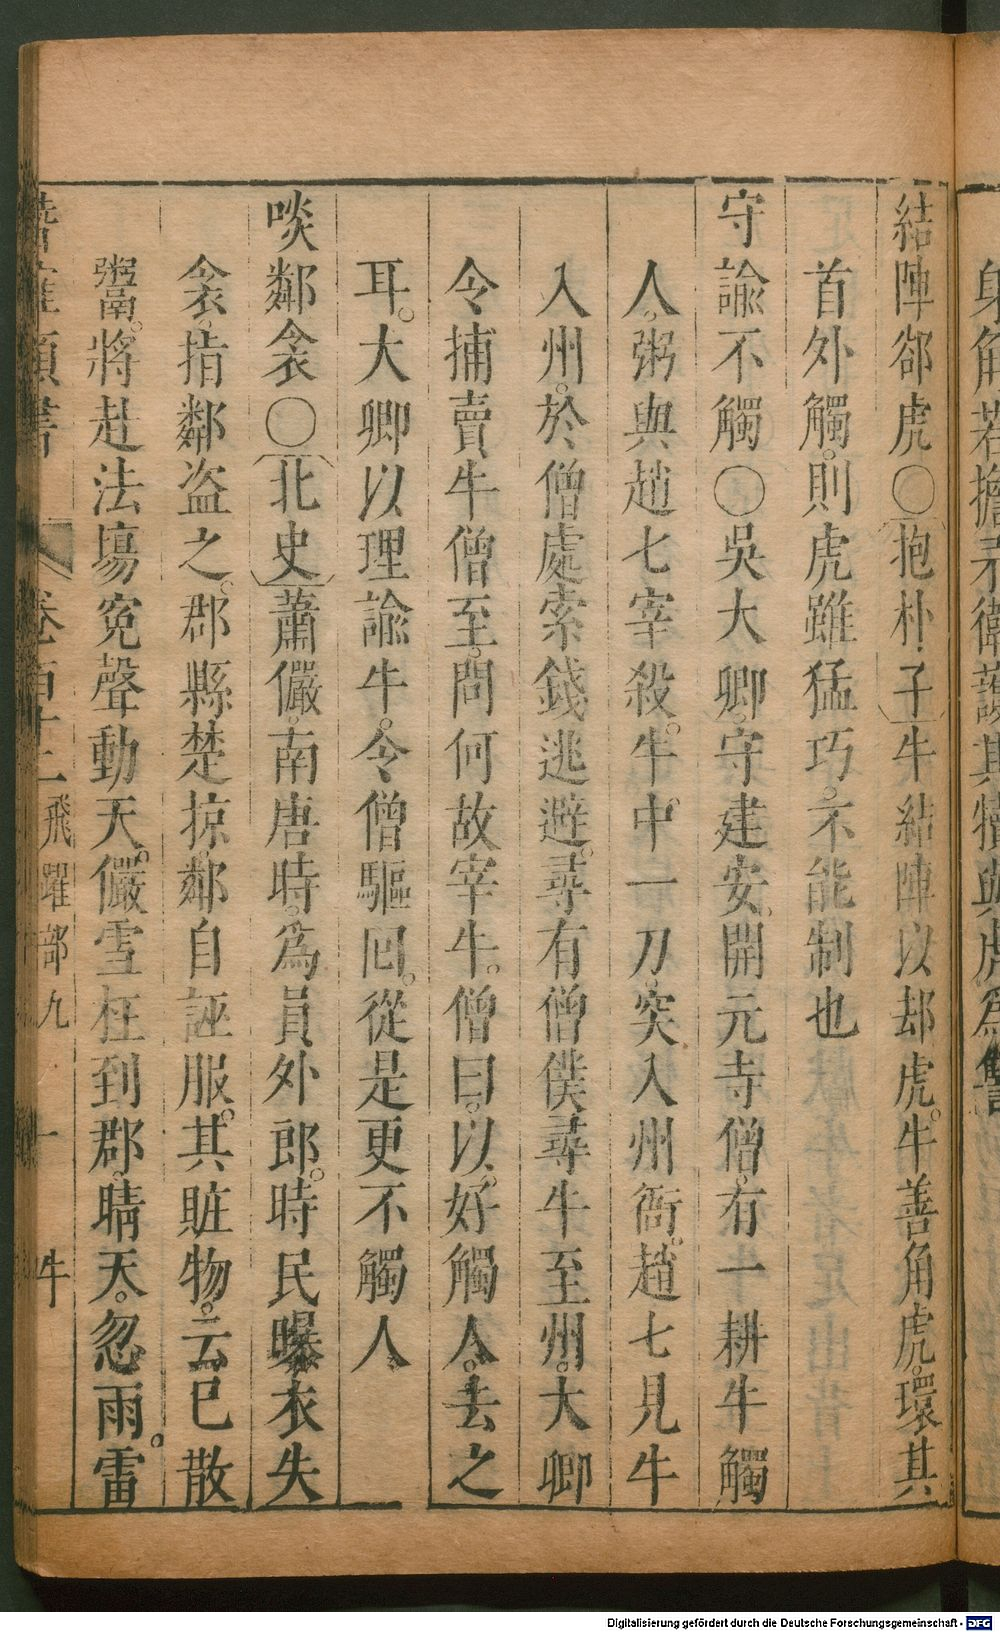 身角若擔矛衛護其犢與虎爲讐
結陣卻虎〇抱朴子牛結陣以却虎。牛善角虎。環其
首外觸。則虎雖猛巧。不能制也
守諭不觸〇吳大卿。守建安。開元寺僧。有一耕牛觸
人。粥與趙七宰殺。牛中一刀。突入州衙。趙七見牛
入州。於僧處索錢逃避。尋有僧僕尋牛至州。大卿
令捕賣牛僧至。問何故宰牛。僧曰。以。好觸人。去之
耳。大卿以理諭牛。令僧驅回。從是更不觸人
啖鄰衾〇北史蕭儼。南唐時。爲員外郎。時民曝衣失
衾。指鄰盜之。郡縣楚掠。鄰自誣服。其賍物。云已散
鬻。將赴法場寃聲動天。儼雪枉到郡。晴天。忽雨。雷
類書 卷百十二飛躍部九 一 牛
Digitalisierung gefördert durch die Deutsche Forschungsgemeinschaft - DFG